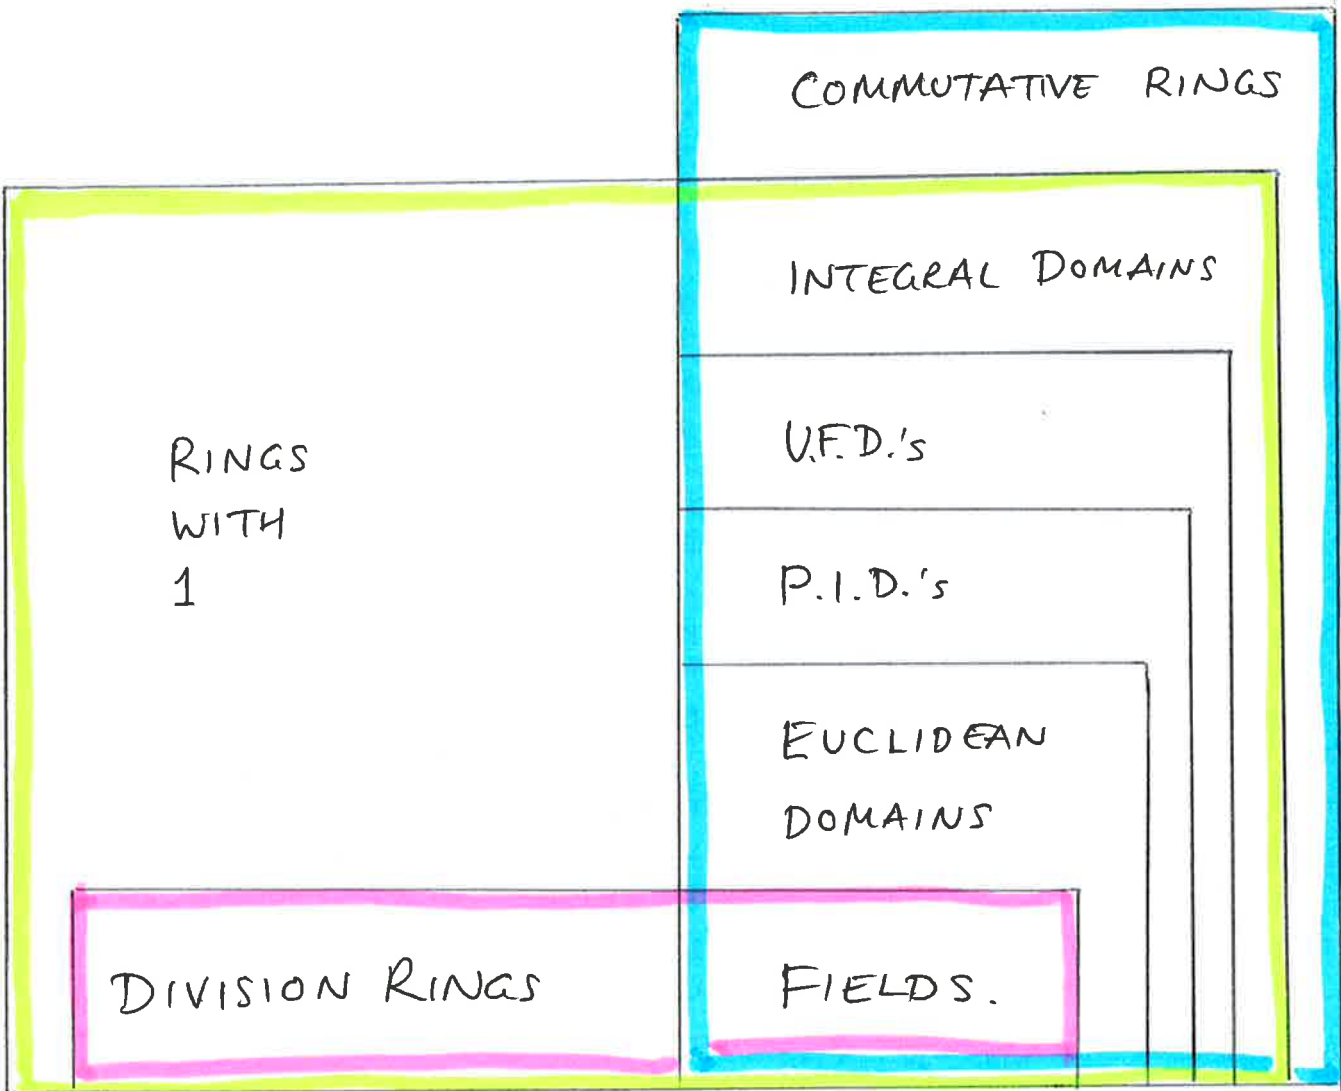 COMMUTATIVE RINGS
INTEGRAL DOMAINS
RINGS
WITH
1
U.F.D.'s
P.I.D.'s
EUCLIDEAN
DOMAINS
DIVISION RINGS
FIELDS.